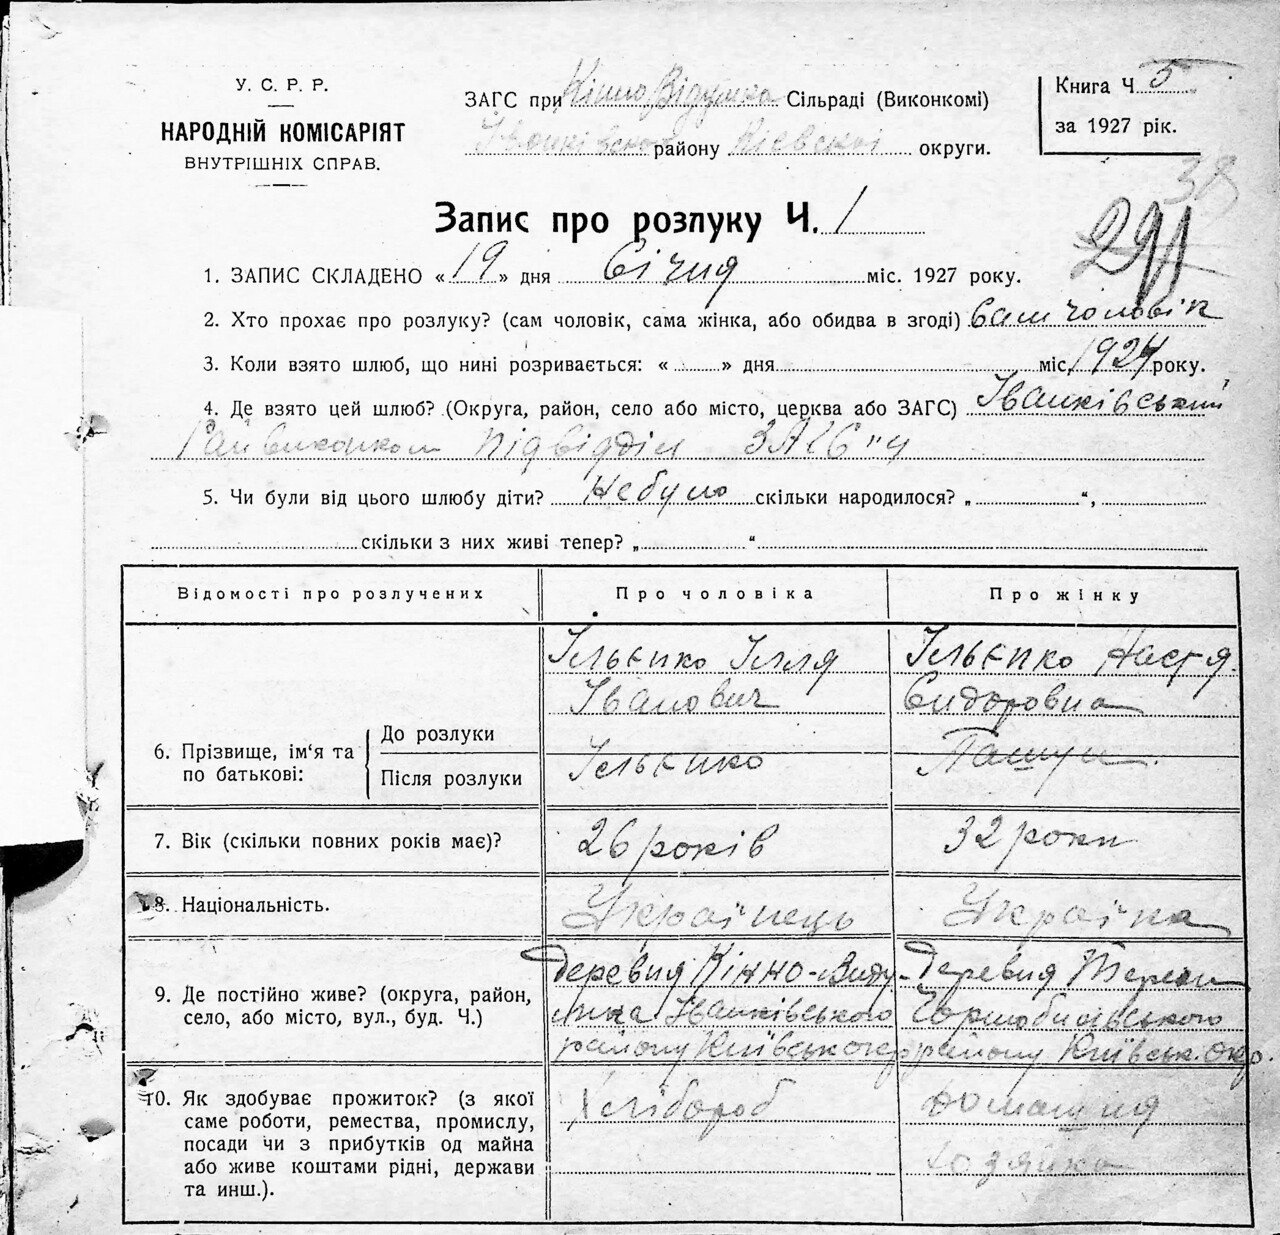 У. С. Р. Р.
НАРОДНІЙ КОМІСАРІЯТ
ВНУТРІШНІХ СПРАВ.
ЗАГС при Кінно Відумка Сільраді (Виконкомі)
Іванківской району Кієвскої округи.
Книга Ч. 5
за 1927 рік.
38
291
Запис про розлуку Ч. 1
1. ЗАПИС СКЛАДЕНО «19» дня Січня міс. 1927 року.
2. Хто прохає про розлуку? (сам чоловік, сама жінка, або обидва в згоді) Сам чоловік
3. Коли взято шлюб, що нині розривається: « » дня міс. 1924 року.
4. Де взято цей шлюб? (Округа, район, село або місто, церква або ЗАГС) Іванківський
Райвиконком підвідділ ЗАГС"у
5. Чи були від цього шлюбу діти? Небуло скільки народилося? „ “,
скільки з них живі тепер? „ “
Відомості про розлучених Про чоловіка Про жінку
Ільєнко Ілля Ільєнко Настя
Іванович Сидоровна
6. Прізвище, ім'я та по батькові: До розлуки
Після розлуки Ільєнко
7. Вік (скільки повних років має)? 26 років 32 роки
8. Національність. Українець Україка
9. Де постійно живе? (округа, район, село, або місто, вул., буд. Ч.)
Деревня Кінно-Виду- Деревня
мка Іванківського Чорнобильського
району Київськ окр району Київськ. окр.
10. Як здобуває прожиток? (з якої Хлібороб домашня
саме роботи, ремества, промислу,
посади чи з прибутків од майна
або живе коштами рідні, держави хозяйка
та инш.).